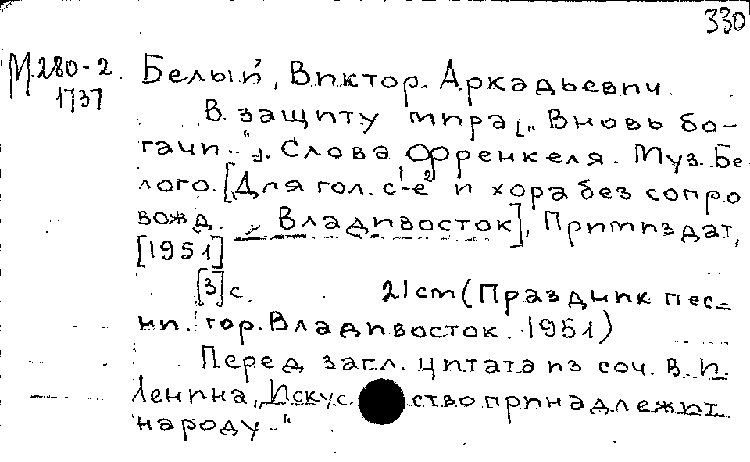 330
М280-2
1737
Белый, Виктор Аркадьевич
В защиту мира [„Вновь бо-
гачи.."]. Слова Френкеля. Муз. Бе
лого. [Для гол. c¹-e² и хора без сопро
вожд. Владивосток], Примиздат,
[1951]
[3] с. 21 cm (Праздник пес-
ни. гор. Владивосток. 1951)
Перед загл. цитата из соч. В. И.
Ленина „Искус ство принадлежит
народу.."